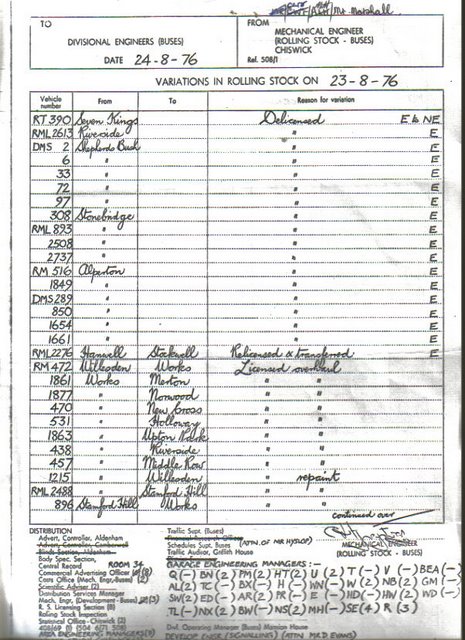 Mr Marshall
TO
DIVISIONAL ENGINEERS (BUSES)
DATE 24-8-76
FROM
MECHANICAL ENGINEER
(ROLLING STOCK - BUSES)
CHISWICK
Ref. 508/1
VARIATIONS IN ROLLING STOCK ON 23-8-76
Vehicle number From To Reason for variation
RT 390 Seven Kings Delicensed E & NE
RML 2613 Riverside " E
DMS 2 Shepherds Bush " E
6 " " E
33 " " E
72 " " E
97 " " E
308 Stonebridge " E
RML 893 " " E
2508 " " E
2737 " " E
RM 516 Alperton " E
1849 " " E
DMS 289 " " E
850 " " E
1654 " " E
1661 " " E
RML 2276 Hanwell Stockwell Relicensed & transferred E
RM 472 Willesden Works Licensed overhaul
1861 Works Merton " "
1877 " Norwood " "
470 " New Cross " "
531 " Holloway " "
1863 " Upton Park " "
438 " Riverside " "
457 " Middle Row " "
1215 " Willesden " repaint
RML 2488 " Stamford Hill " "
896 Stamford Hill Works " "
continued over
MECHANICAL ENGINEER
(ROLLING STOCK - BUSES)
DISTRIBUTION
Advert. Controller, Aldenham
Advert. Controller, Camberwell
Blinds Section, Aldenham
Body Spec. Section,
Central Record ROOM 34
Commercial Advertising Officer (8)
Costs Officer (Mech. Engr.-Buses) (2)
Scientific Adviser (2)
Distribution Services Manager
Mech. Engr. (Development-Buses) (3)
R. S. Licensing Section (8)
Rolling Stock Inspection
Statistical Office - Chiswick (2)
AREA ENGINEERING MANAGERS
Traffic Supt. (Buses)
Financial Research Officer
Schedules Supt. Buses (ATTN. OF MR HYSLOP)
Traffic Auditor, Griffith House
GARAGE ENGINEERING MANAGERS:-
Q (-) BN (2) PM (2) HT (2) U (2) T (-) V (-) BEA (-)
AL (2) TC (-) BX (-) H (-) WN (-) W (2) NB (2) GM (-)
SW (2) ED (-) AR (2) PR (-) E (-) HD (-) HW (2) WD (-)
TL (-) NX (2) BW (-) NS (2) MH (-) SE (4) R (3)
Dvl. Operating Manager (Buses) Mansion House
DEVELOP ENGR (SIGNALLING) (ATTN MR D EVANS)